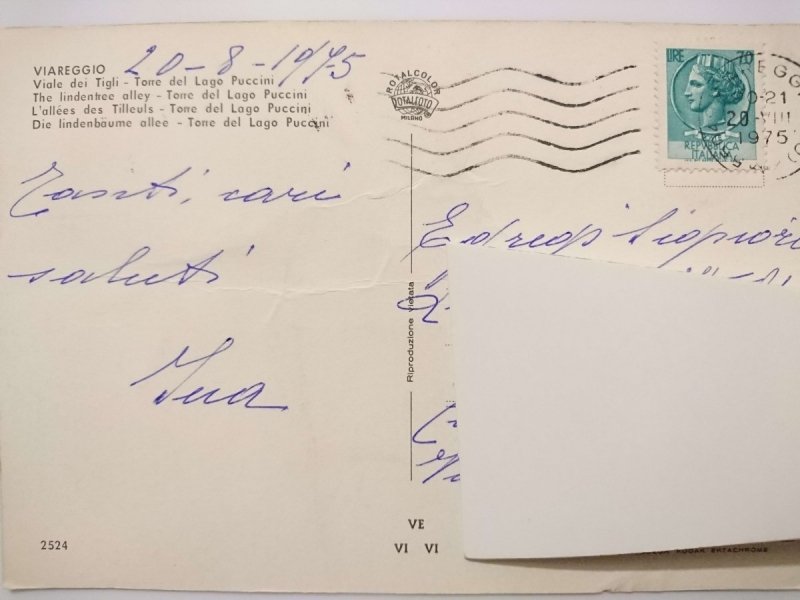 20-8-1975
VIAREGGIO
Viale dei Tigli - Torre del Lago Puccini
The lindentree alley - Torre del Lago Puccini
L'allées des Tilleuls - Torre del Lago Puccini
Die lindenbäume allee - Torre del Lago Puccini
Tanti, cari
saluti
Ina
2524
ROTALCOLOR
ROTALFOTO
MILANO
Riproduzione vietata
VE
VI VI
LIRE 70
REPUBBLICA
ITALIANA
20-VIII
1975
KODAK EKTACHROME